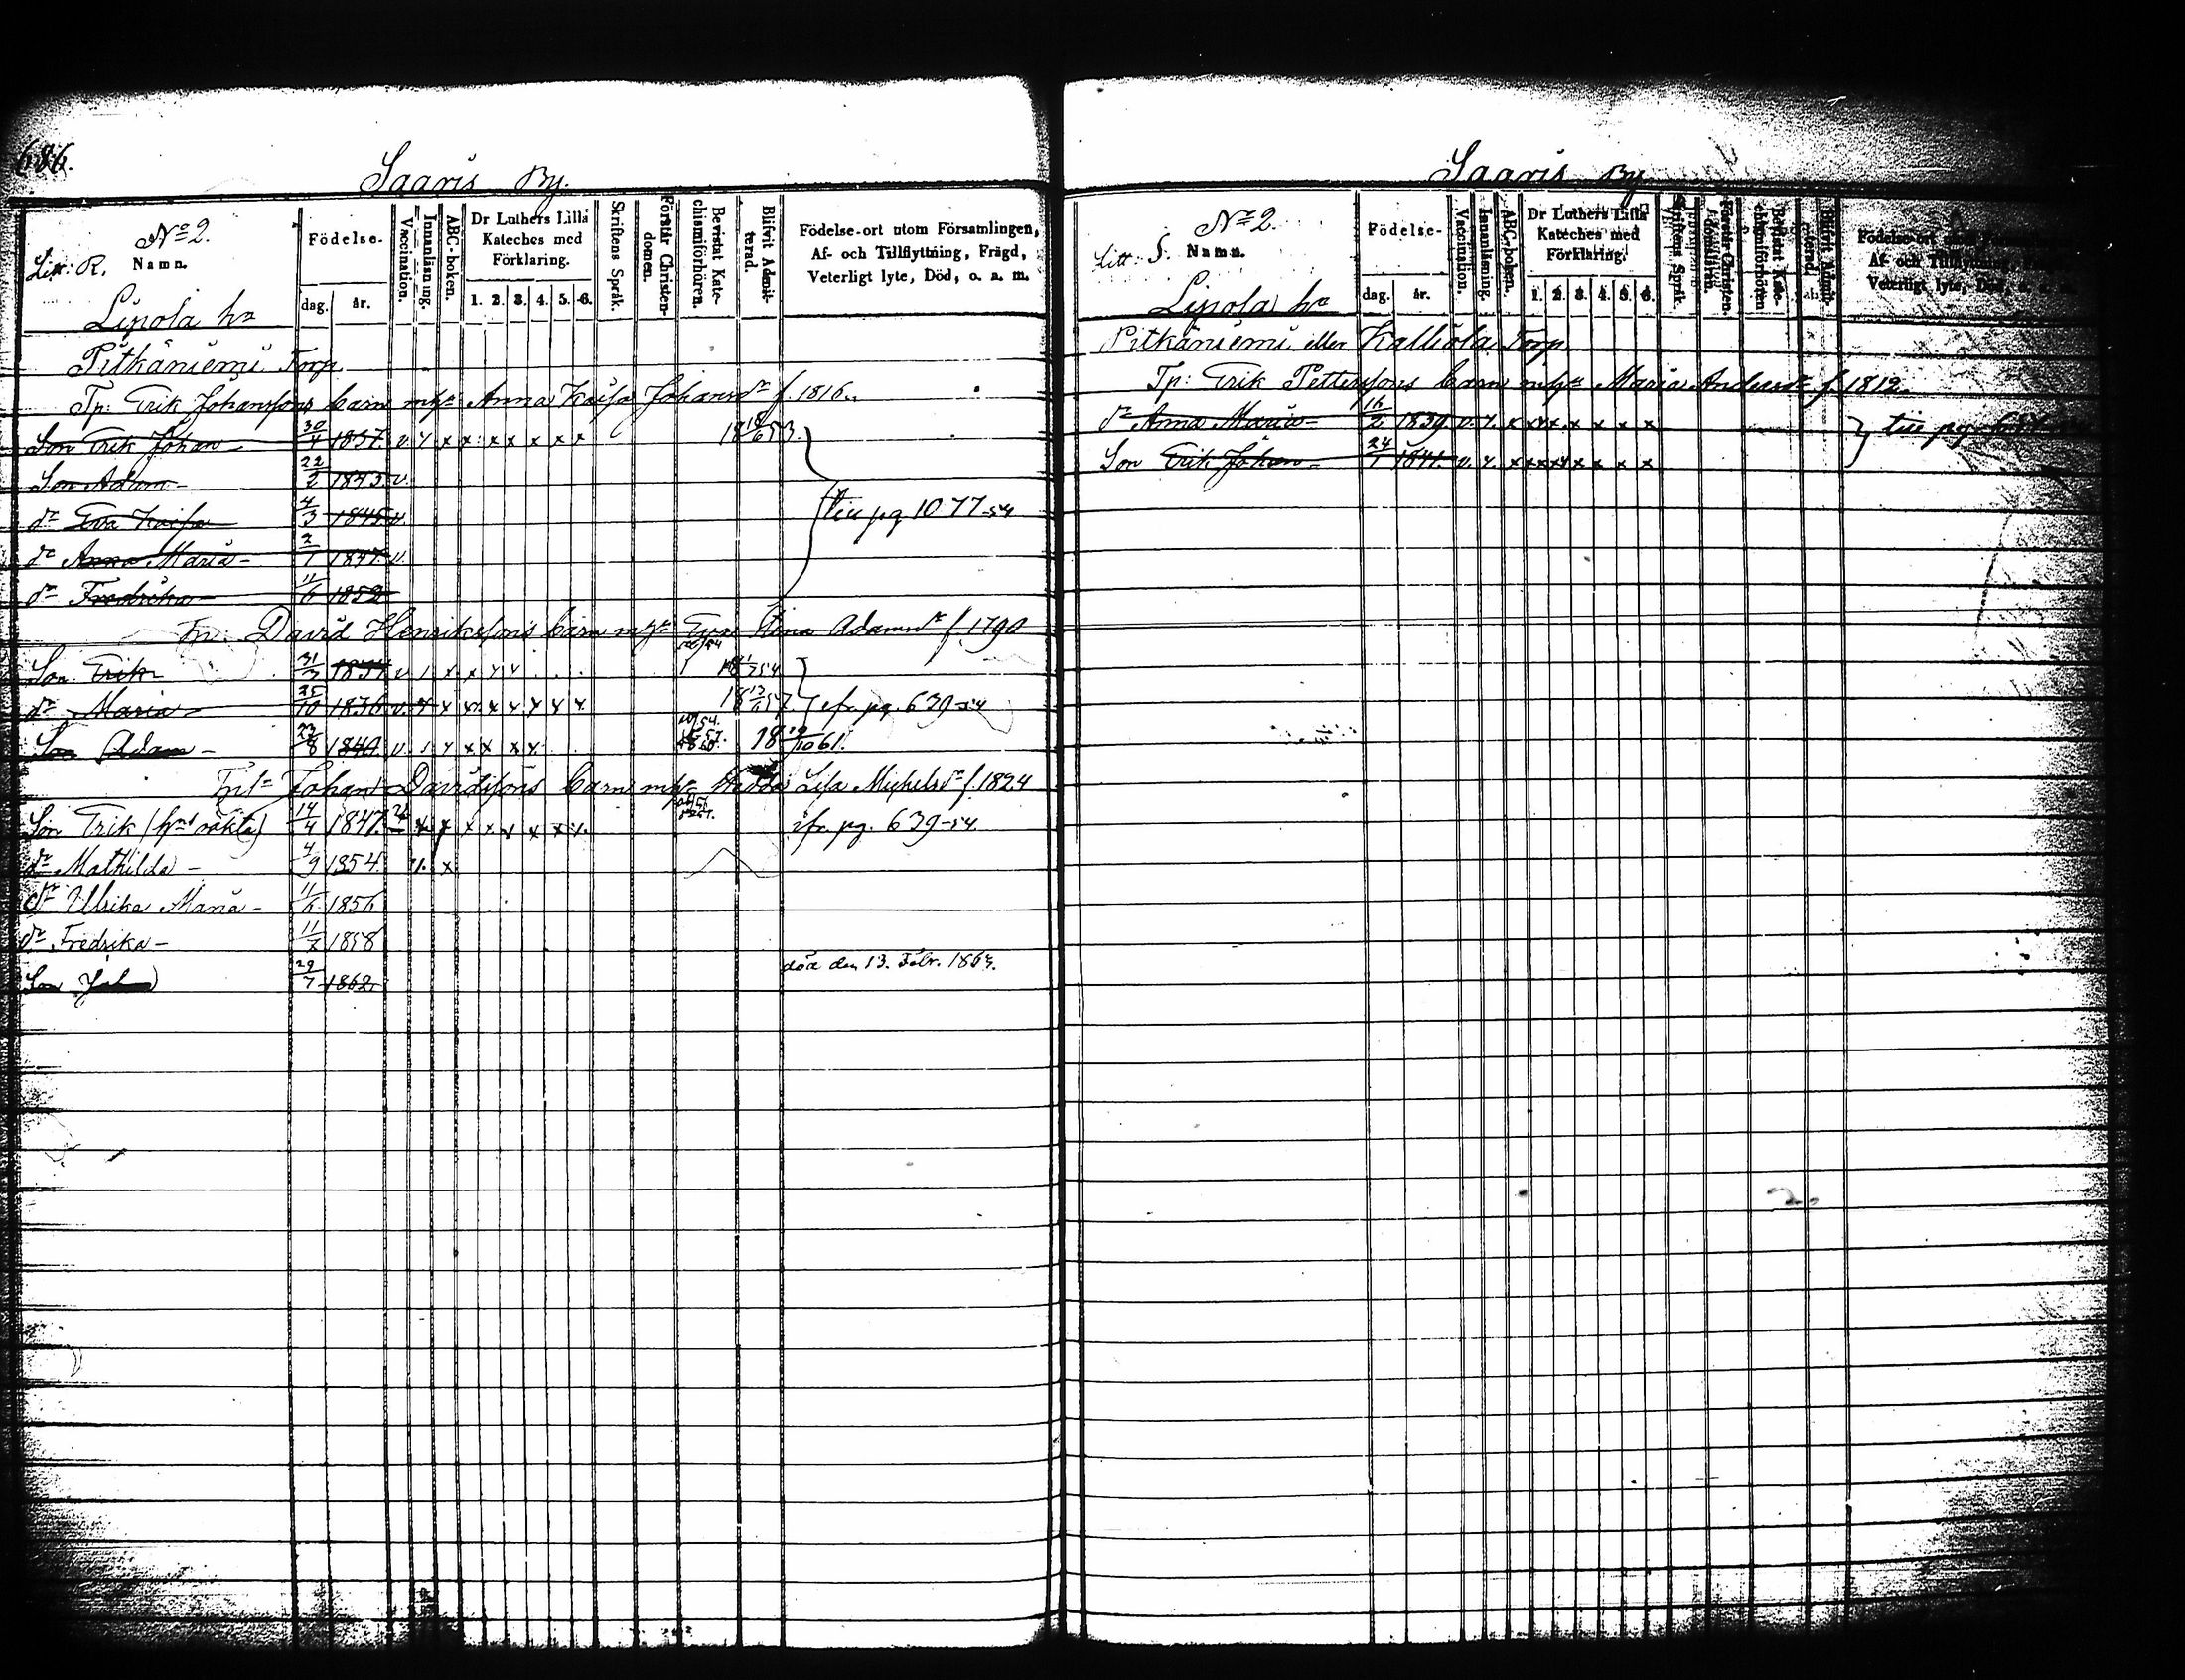 686.
Saaris By.
Litt. R. No 2.
Namn.
Födelse-
dag. år.
Vaccination.
Innanläsning.
ABC-boken.
Dr Luthers Lilla Kateches med Förklaring.
1. 2. 3. 4. 5. 6.
Skriftens Språk.
Förstår Christendomen.
Bevistat Katechismiförhören.
Blifvit Admitterad.
Födelse-ort utom Församlingen, Af- och Tillflyttning, Frägd, Veterligt lyte, Död, o. a. m.
Lipola hn
Pitkäniemi Torp
Tp: Erik Johanssons barn m hu Anna Kaisa Johansdr f. 1816.
Son Erik Johan 30/4 1837. v. x x x x x x x x 18 18/6 53.
Son Adam 22/2 1843 v.
dr Eva Kaisa 4/3 1845 v. till pg 1077-54
dr Anna Maria 2/1 1847. v.
dr Fredrika 11/6 1852
David Henrikssons barn m hu Eva Stina Adamsdr f. 1790
Son Erik 31/3 1834 v. x x x x
dr Maria 25/10 1836 v. x x x x x x x x cfr pg. 639-54
Son Adam 23/8 1840 v. x x x x x 18 19/10 61.
Johan Davidssons barn m hu Hedda Lisa Michelsdr f. 1824
Son Erik (hns oäkta) 14/4 1847. x x x x x x x x cfr. pg. 639-54.
dr Mathilda 4/9 1854. x. x
dr Ulrika Maria 11/6 1856
dr Fredrika 11/2 1858
Son Joh 29/7 1862 död den 13. Febr. 1863.
Saaris By
Litt: S. No 2.
Namn.
Födelse-
dag. år.
Vaccination.
Innanläsning.
ABC-boken.
Dr Luthers Lilla Kateches med Förklaring.
1. 2. 3. 4. 5. 6.
Skriftens Språk.
Förstår Christendomen.
Bevistat Katechismiförhören
Födelse-ort
Af- och Tillflyttning,
Veterligt lyte, Död, o. a. m.
Lipola hn
Pitkäniemi eller Kalliola Torp
Tp: Erik Petterssons barn m hu Maria Andersdr f. 1812.
dr Anna Maria 16/2 1839. v. x. x x x x x x x
Son Erik Johan 24/1 1841. v. x. x x x x x x x x till pg